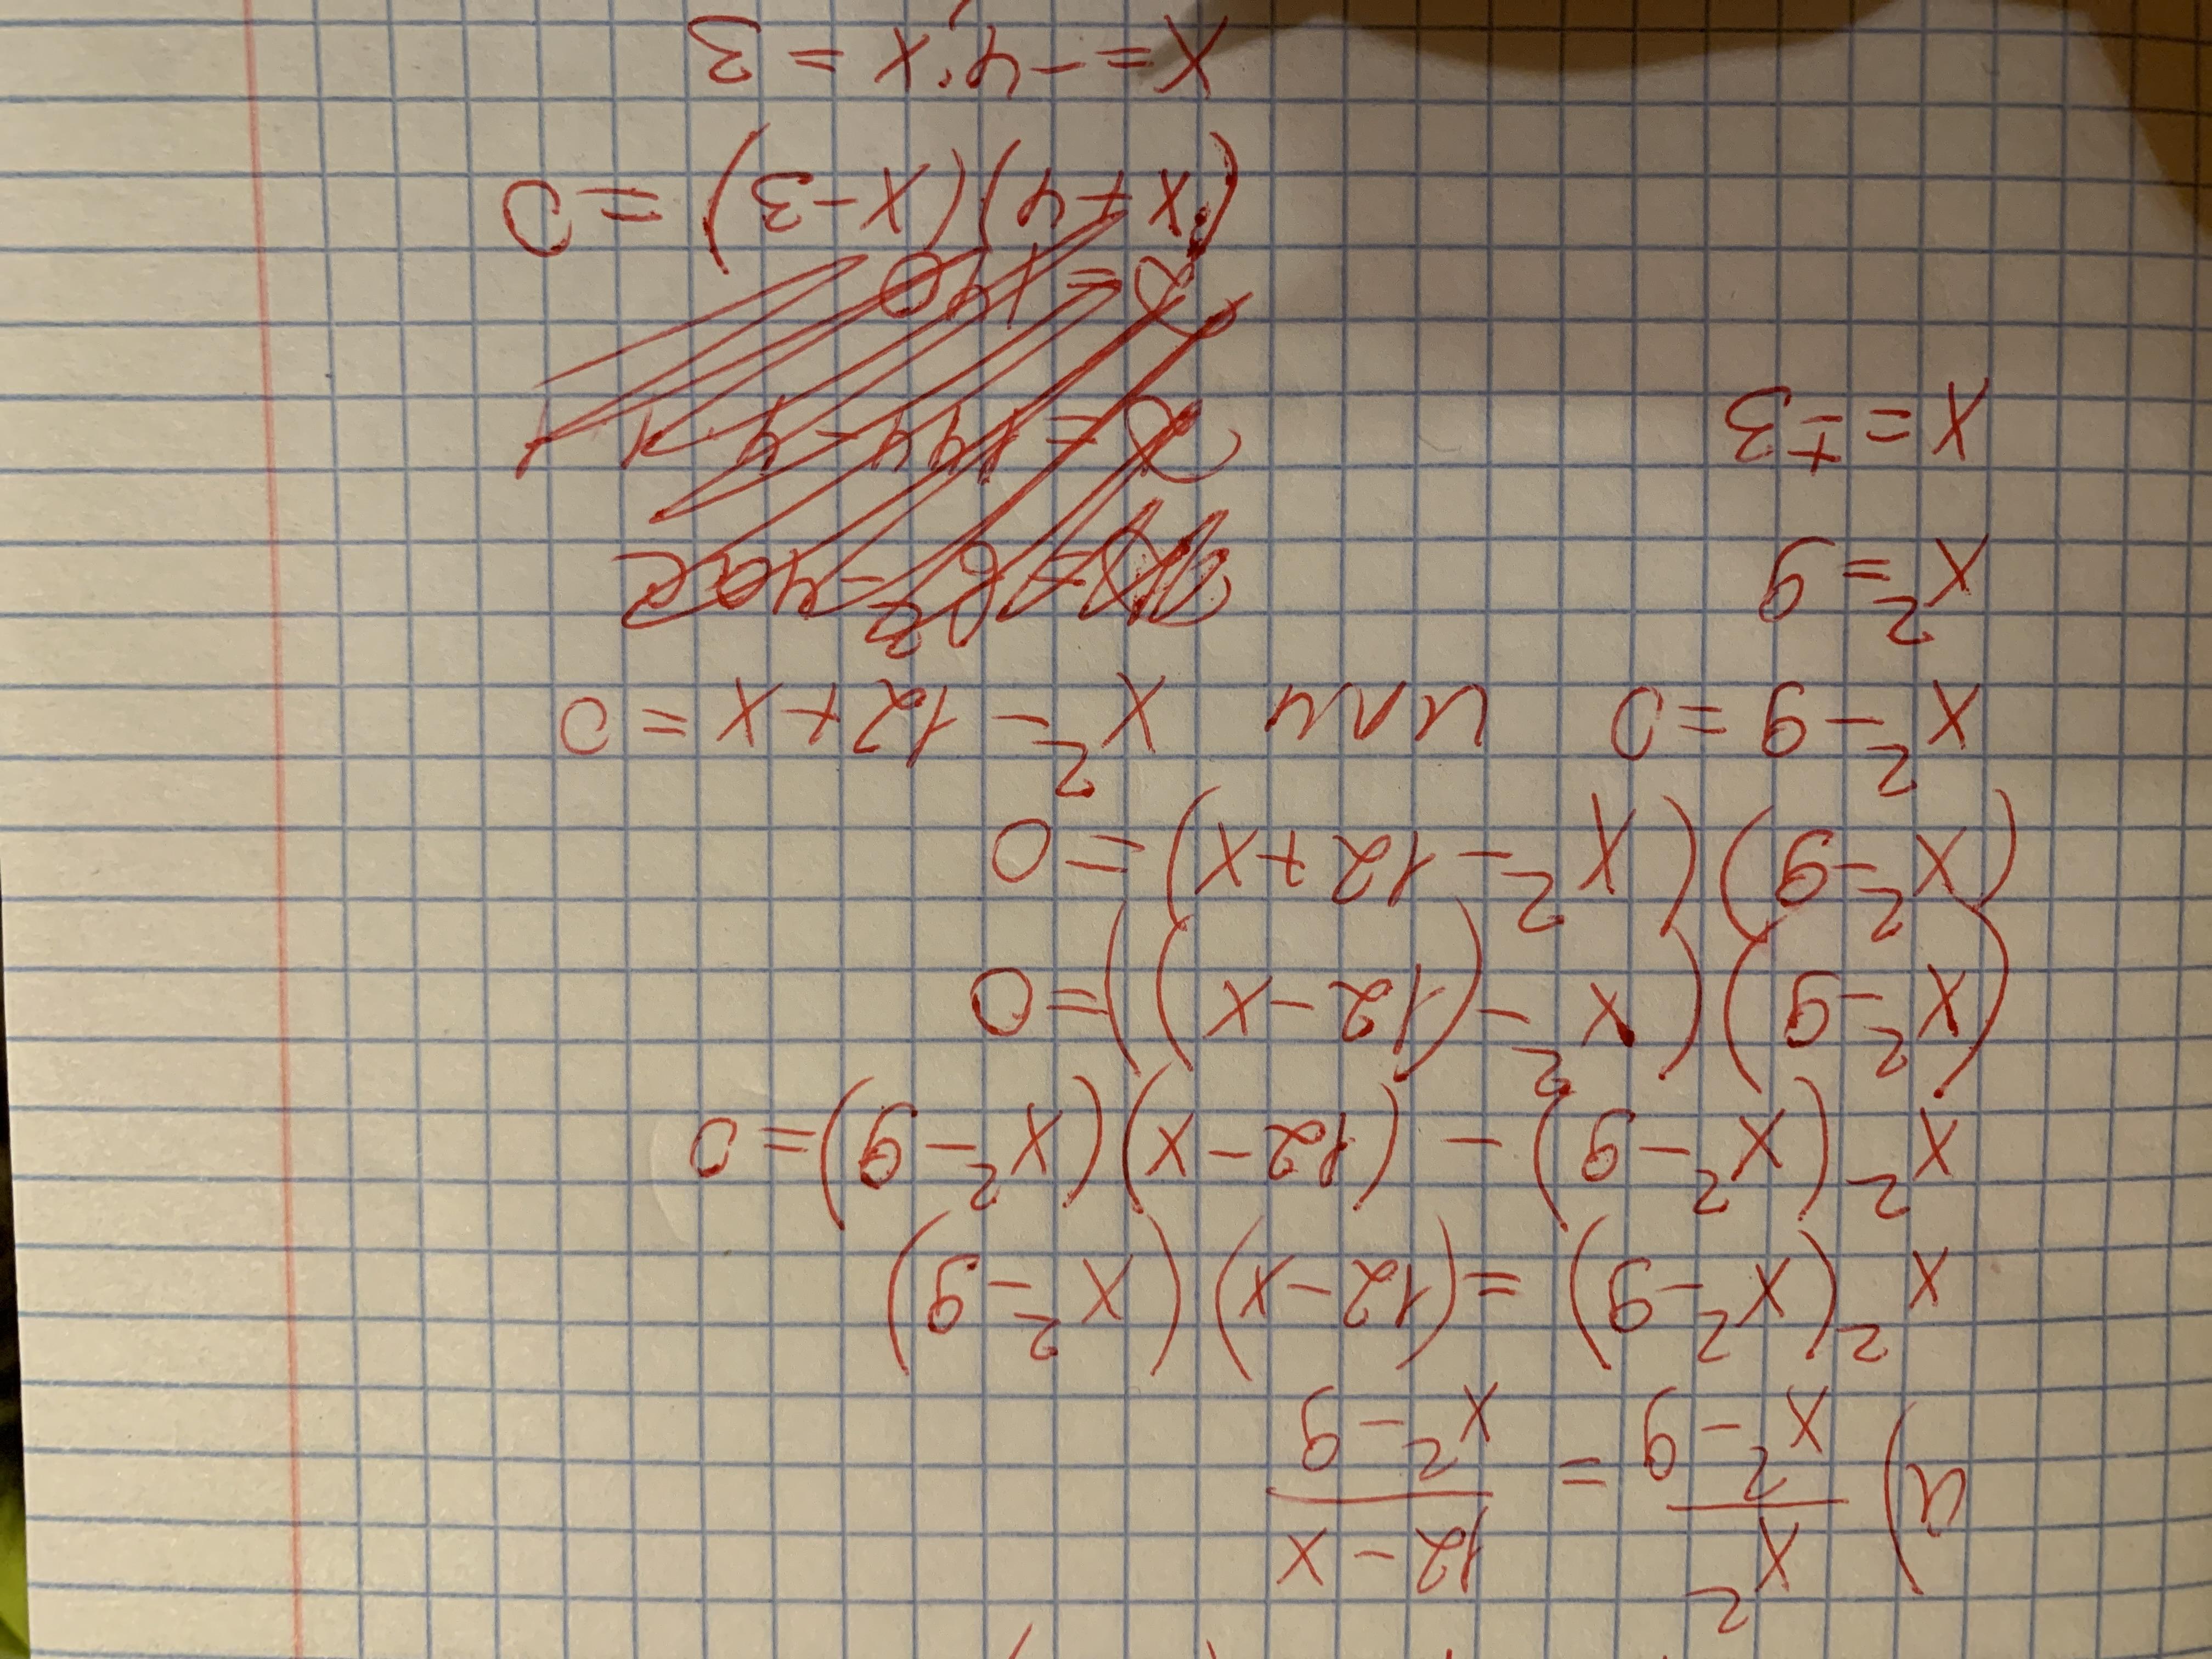 а) x²/(x²-9) = (12-x)/(x²-9)
x²(x²-9) = (12-x)(x²-9)
x²(x²-9) - (12-x)(x²-9) = 0
(x²-9)(x²-(12-x)) = 0
(x²-9)(x²-12+x) = 0
x²-9=0 или x²-12+x=0
x²=9
x=±3
(x+4)(x-3)=0
x=-4; x=3